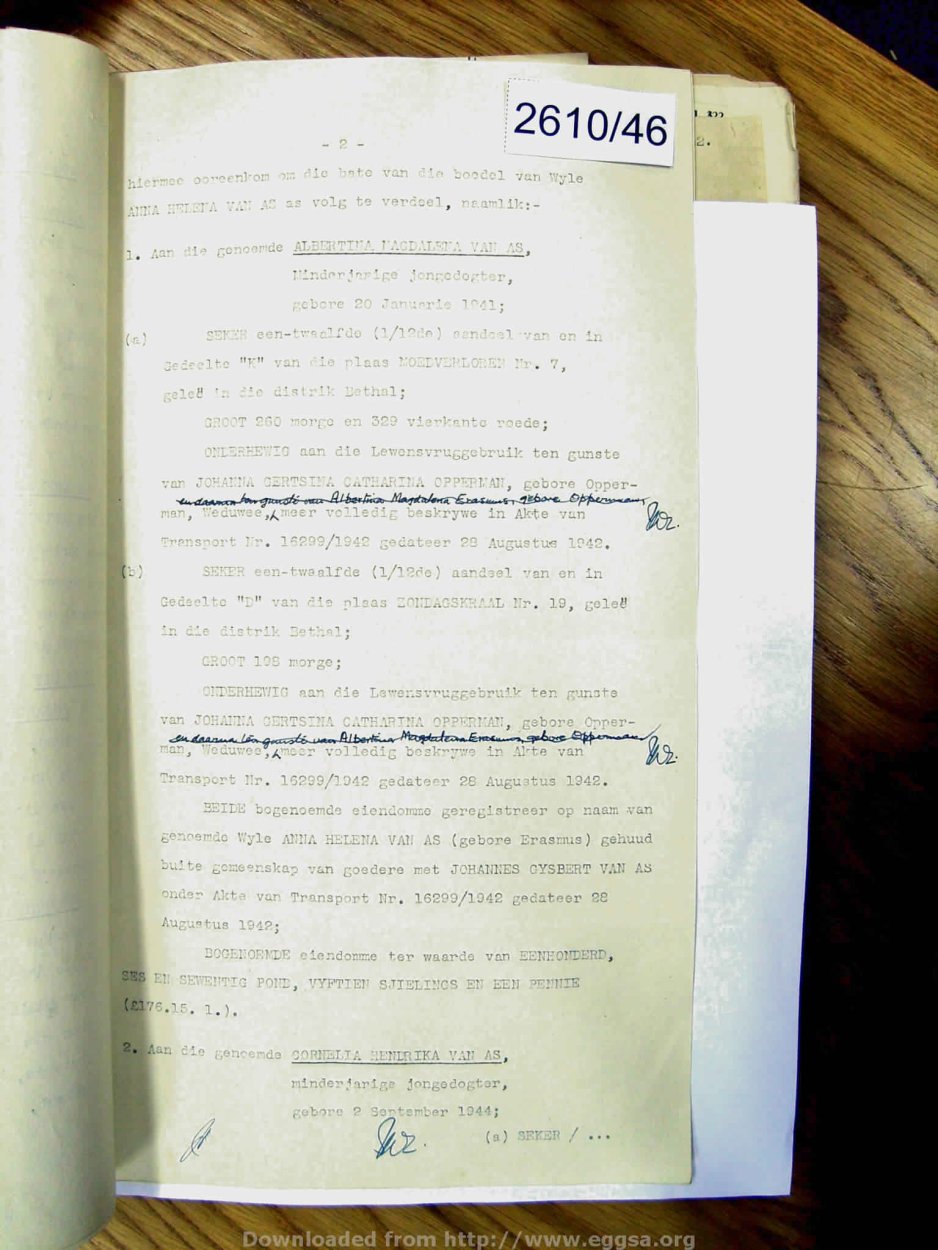 2610/46
2.
- 2 -
hiermee ooreenkom om die bate van die boedel van Wyle
ANNA HELENA VAN AS as volg te verdeel, naamlik:-
1. Aan die genoemde ALBERTINA MAGDALENA VAN AS,
Minderjarige jongedogter,
gebore 20 Januarie 1941;
(a) SEKER een-twaalfde (1/12de) aandeel van en in
Gedeelte "K" van die plaas MOEDVERLOREN Nr. 7,
geleë in die distrik Bethal;
GROOT 260 morge en 329 vierkante roede;
ONDERHEWIG aan die Lewensvruggebruik ten gunste
van JOHANNA GERTSINA CATHARINA OPPERMAN, gebore Opper-
en daarna ten gunste van Albertina Magdalena Erasmus, gebore Oppermann,
man, Weduwee, meer volledig beskrywe in Akte van
Transport Nr. 16299/1942 gedateer 28 Augustus 1942.
(b) SEKER een-twaalfde (1/12de) aandeel van en in
Gedeelte "D" van die plaas ZONDAGSKRAAL Nr. 19, geleë
in die distrik Bethal;
GROOT 108 morge;
ONDERHEWIG aan die Lewensvruggebruik ten gunste
van JOHANNA GERTSINA CATHARINA OPPERMAN, gebore Opper-
en daarna ten gunste van Albertina Magdalena Erasmus, gebore Oppermann,
man, Weduwee, meer volledig beskrywe in Akte van
Transport Nr. 16299/1942 gedateer 28 Augustus 1942.
BEIDE bogenoemde eiendomme geregistreer op naam van
genoemde Wyle ANNA HELENA VAN AS (gebore Erasmus) gehuud
buite gemeenskap van goedere met JOHANNES GYSBERT VAN AS
onder Akte van Transport Nr. 16299/1942 gedateer 28
Augustus 1942;
BOGENOEMDE eiendomme ter waarde van EENHONDERD,
SES EN SEWENTIG POND, VYFTIEN SJIELINGS EN EEN PENNIE
(£176.15. 1.).
2. Aan die genoemde CORNELIA HENDRIKA VAN AS,
minderjarige jongedogter,
gebore 2 September 1944;
(a) SEKER / ...
Downloaded from http://www.eggsa.org